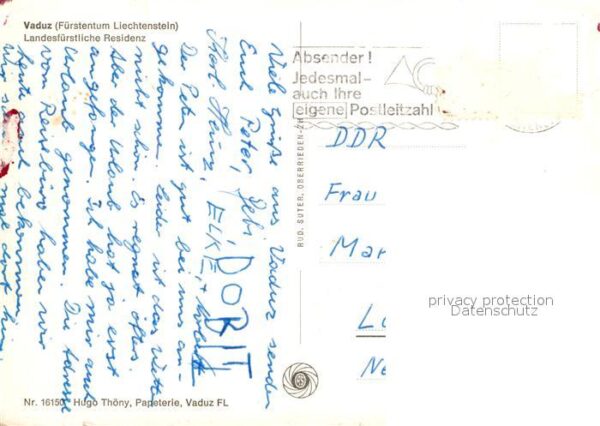 Vaduz (Fürstentum Liechtenstein)
Landesfürstliche Residenz
Viele Grüße aus Vaduz senden
Euch Peter, Gabi,
Heinz, ELKE +
DORIT
Der Peter ist gut bei uns an-
gekommen. Leider ist das Wetter
nicht schön. Es regnet öfters.
Aber der Urlaub hat ja erst
angefangen. Ich habe mir auch
Urlaub genommen. Die Adresse
vom Reisebüro haben wir
heute auch bekommen.
Wir mal dort hin.
Absender!
Jedesmal-
auch Ihre
eigene Postleitzahl
DDR
Frau
Mar
L
Ne
RUD. SUTER, OBERRIEDEN-ZH
privacy protection
Datenschutz
Nr. 16150 Hugo Thöny, Papeterie, Vaduz FL